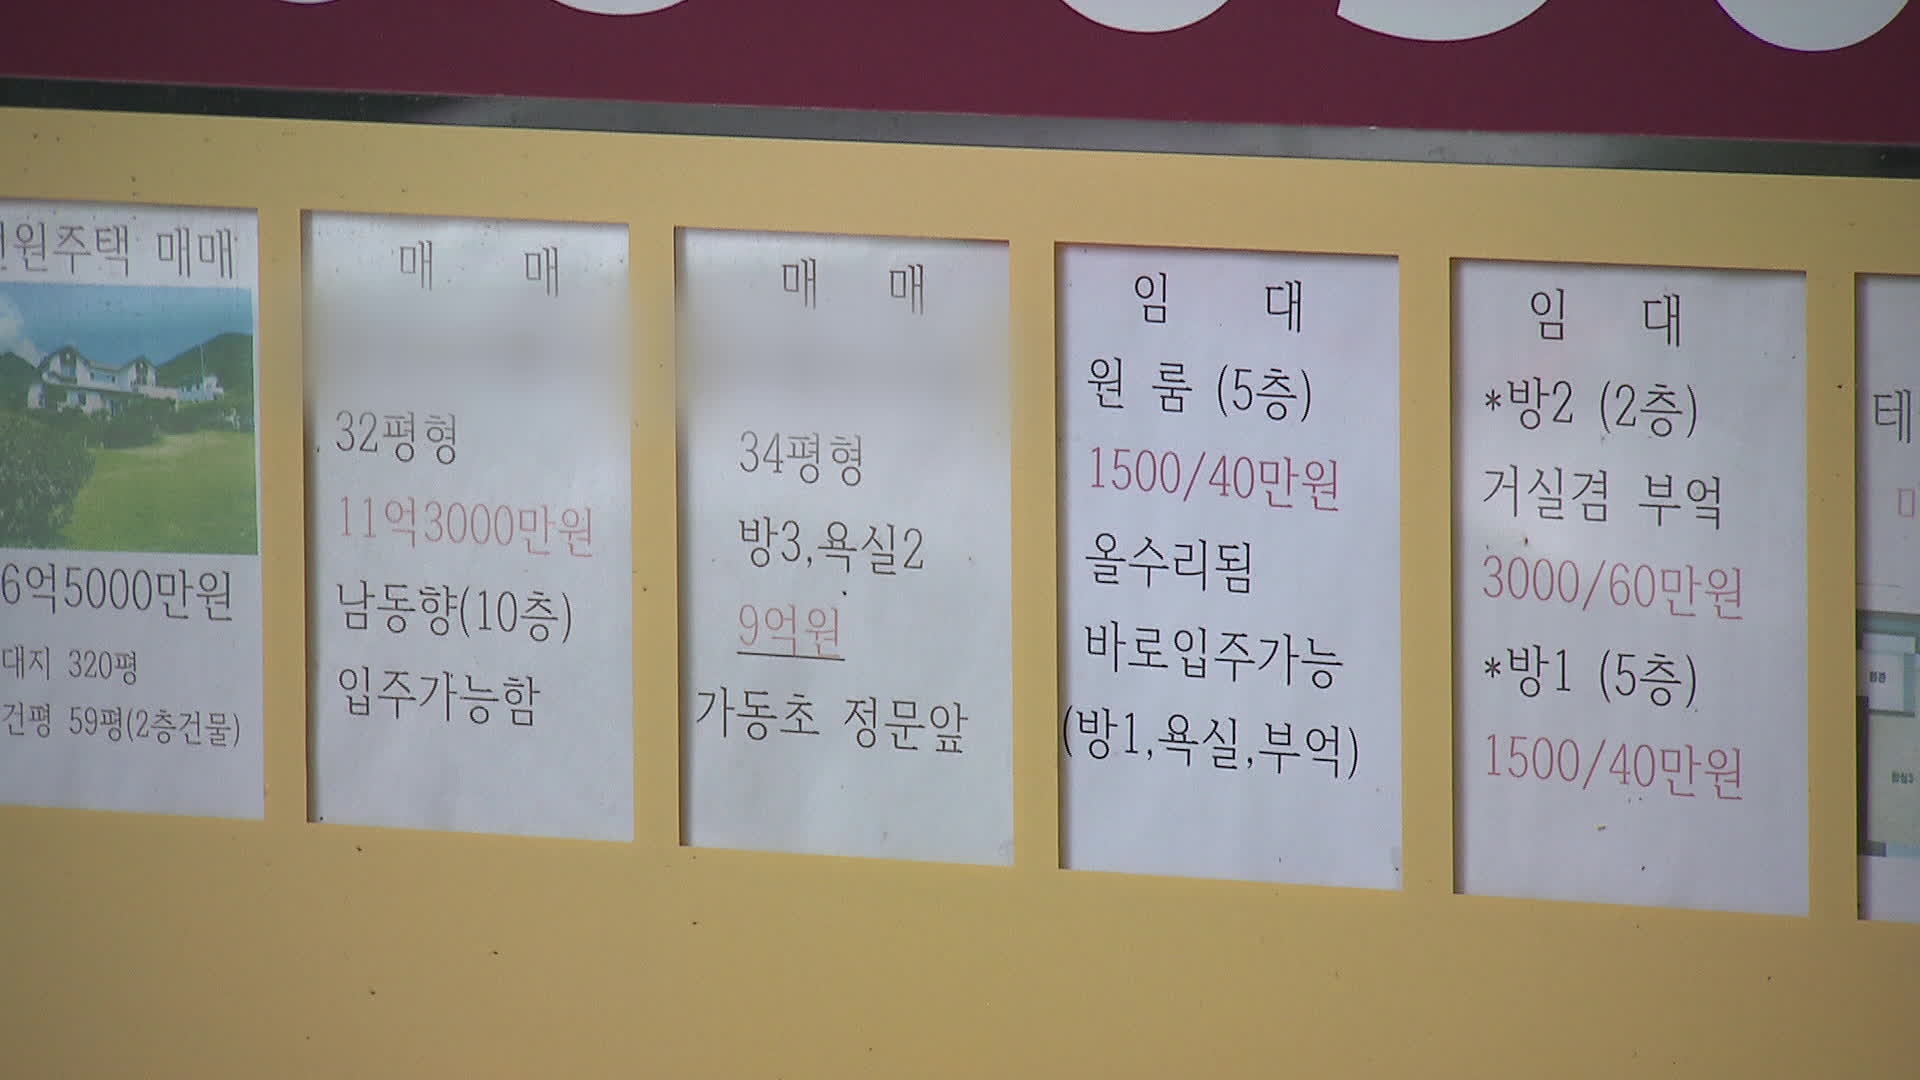 원주택 매매
6억5000만원
대지 320평
건평 59평(2층건물)
매 매
32평형
11억3000만원
남동향(10층)
입주가능함
매 매
34평형
방3,욕실2
9억원
가동초 정문앞
임 대
원 룸 (5층)
1500/40만원
올수리됨
바로입주가능
(방1,욕실,부억)
임 대
*방2 (2층)
거실겸 부엌
3000/60만원
*방1 (5층)
1500/40만원
테